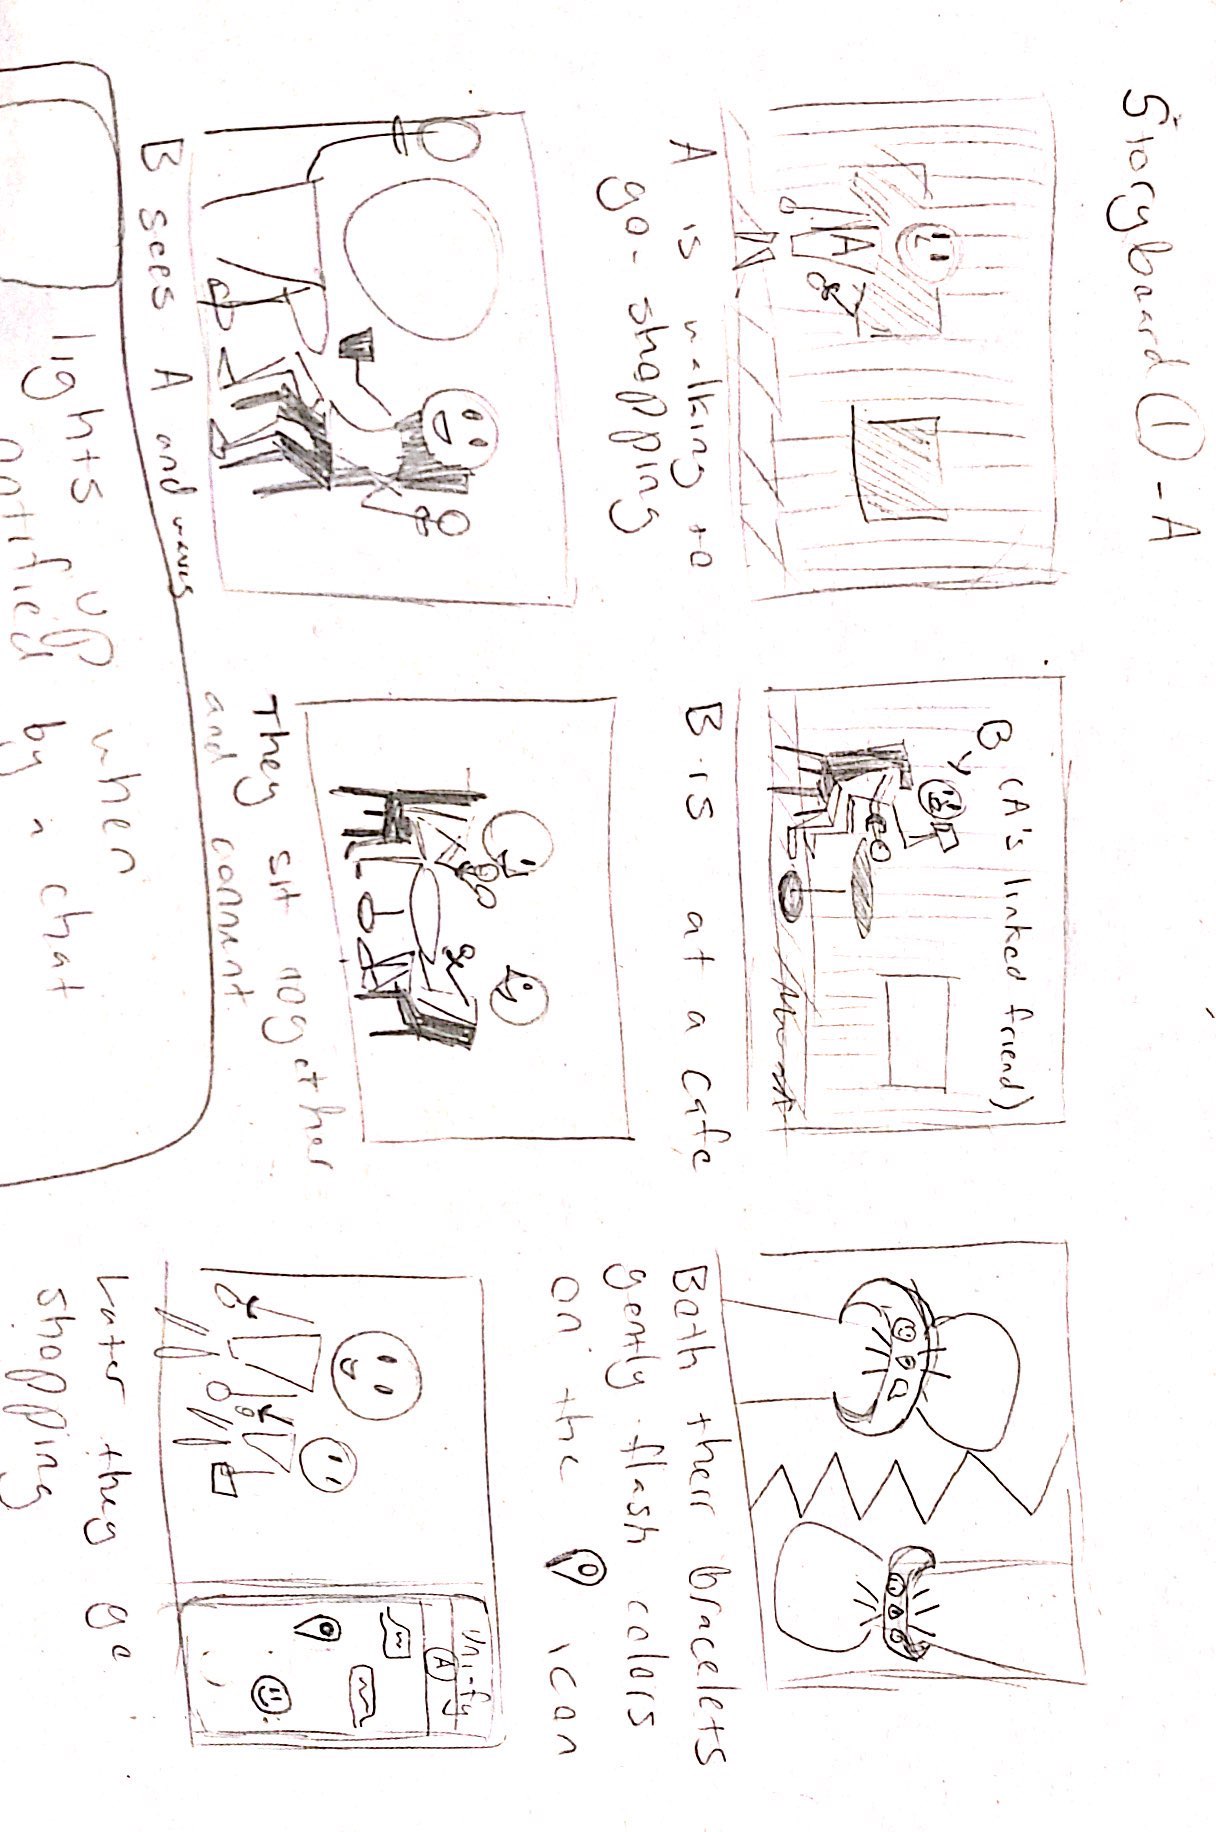 Storyboard ① - A
A
B (A's linked friend)
A is walking to
go shopping
B is at a cafe
Both their bracelets
gently flash colors
on the icon
B sees A and waves
They sit together
and connect
Uni-fy
A
Later they go
shopping
lights up when
notified by a chat